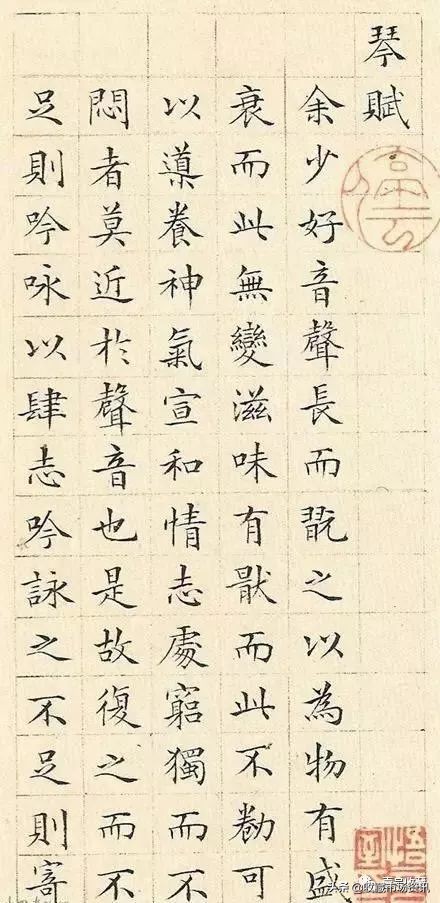 琴賦
余少好音聲長而翫之以為物有盛
衰而此無變滋味有猒而此不勌可
以導養神氣宣和情志處窮獨而不
悶者莫近於聲音也是故復之而不
足則吟咏以肆志吟詠之不足則寄
头条 @收藏市场资讯